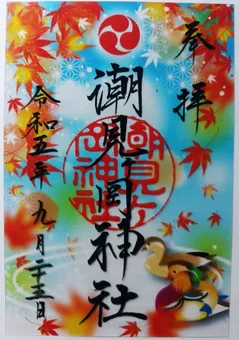 奉拝
潮見ヶ岡神社
潮見ヶ岡神社
令和五年 九月二十三日